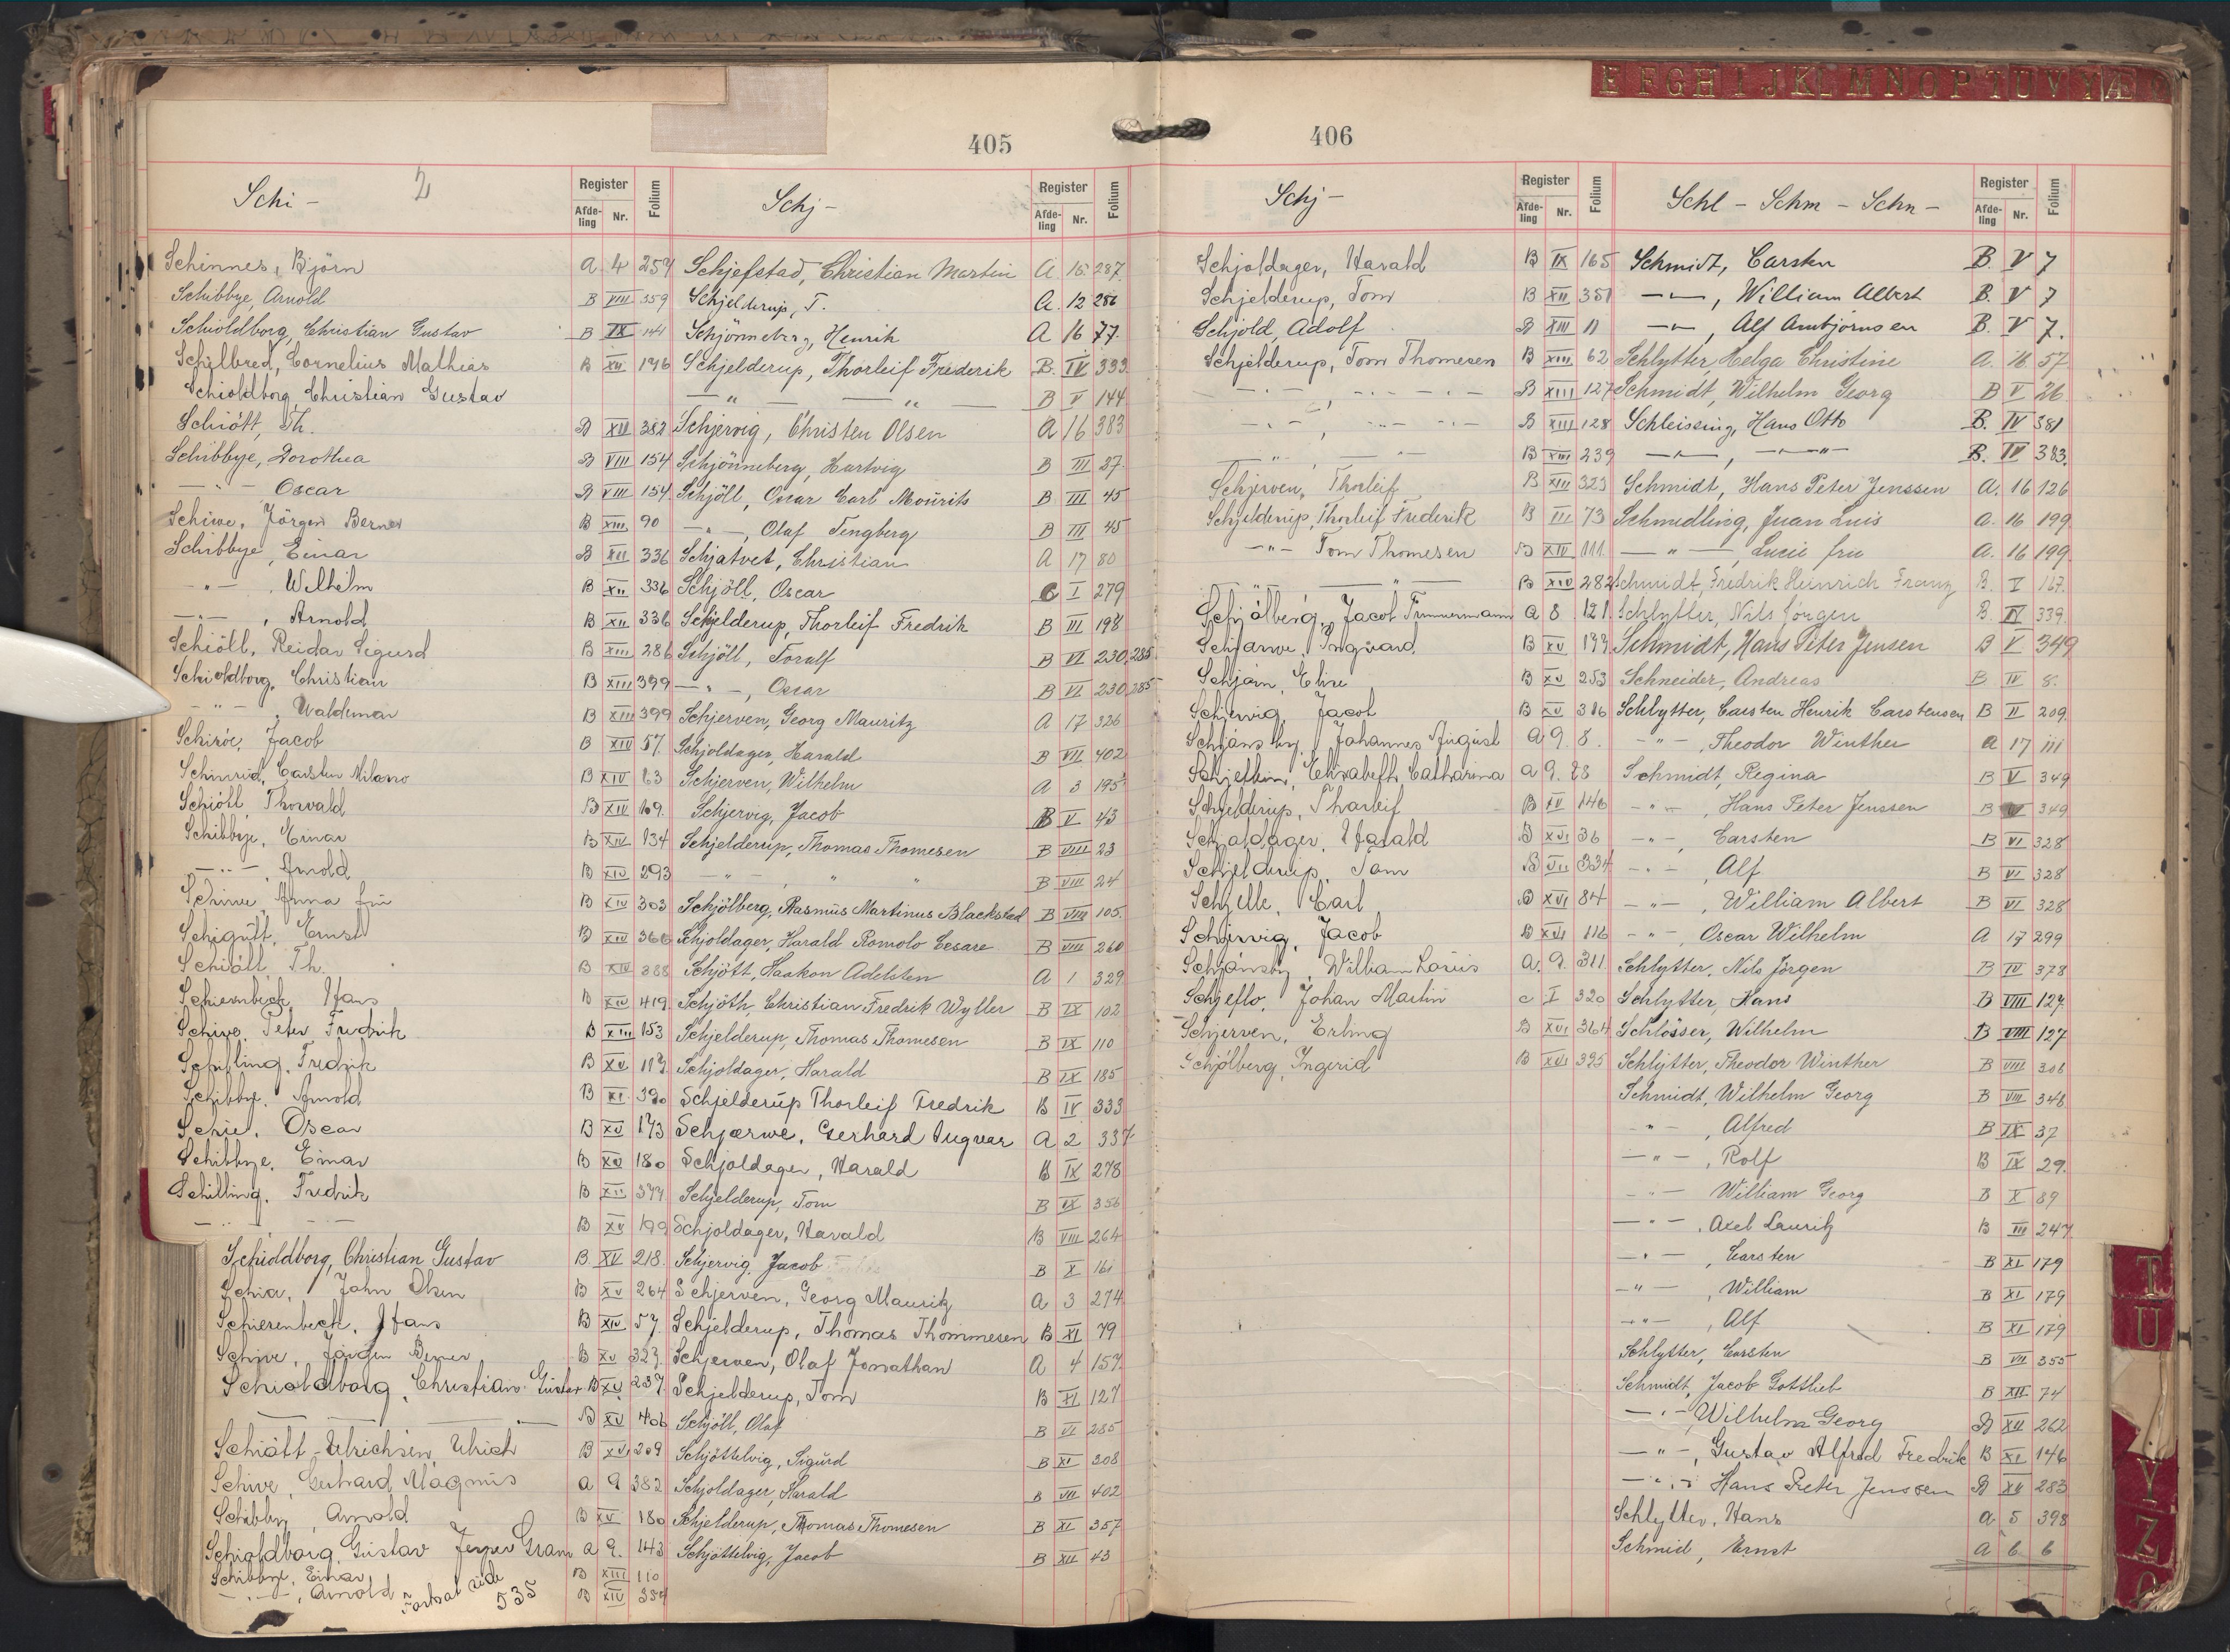 E F G H I J K L M N O P T U V Y Æ
405
Schi-
2
Register
Afde-ling
Nr.
Folium
Schinnes, Björn A 4 257
Schibbye, Arnold B VIII 359
Schioldborg, Christian Gustav B IX 141
Schilbred, Cornelius Mathias B XII 196
Schioldborg Christian Gustav
Schiött, Th. B XII 382
Schibbye, Dorothea B VIII 154
—"— Oscar B VIII 154
Schiwe, Jörgen Berner B XIII 90
Schibbye, Einar B XII 336
—"—, Wilhelm B XII 336
—"—, Arnold B XII 336
Schiöll, Reidar Sigurd B XIII 286
Schioldborg, Christian B XIII 399
—"—, Waldemar B XIII 399
Schiröe, Jacob B XIV 57
Schinrud, Carsten Nilano B XIV 63
Schiöll, Thorvald B XIV 109
Schibbye, Einar B XIV 134
—"—, Arnold B XIV 293
Schiwe, Anna fru B XIV 303
Schigutt, Ernst B XIV 366
Schiöll, Th. B XIV 388
Schierenbeck, Hans B XIV 419
Schive, Peter Fredrik B XIII 153
Schilling, Fredrik B XV
Schibbye, Arnold B XI 390
Schiel, Oscar B XV 173
Schibbye, Einar B XV 180
Schilling, Fredrik B XII 377
—"— —"— B XV 199
Schioldborg, Christian Gustav B XV 218
Schia, John Olsen B XV 264
Schierenbeck, Hans B XIV 57
Schive, Jörgen Berner B XV 323
Schioldborg, Christian Gustav B XV 237
— — — B XV 406
Schiött-Ulrichsen, Ulrich B XVI 209
Schive, Gerhard Magnus A 9 382
Schibbye, Arnold B XV 180
Schioldborg, Gustav Jesper Gram A 9 143
Schibbye, Einar B XIII 110
—"—, Arnold B XIV 354
Fortsat side 535
Schj-
Register
Afde-ling
Nr.
Folium
Schjefstad, Christian Martin A 16 287
Schjelderup, T. A. 12 286
Schjönneberg, Henrik A 16 77
Schjelderup, Thorleif Frederik B. IV 333
—"— —"— B V 144
Schjervig, Christen Olsen A 16 383
Schjönneberg, Hartvig B III 37
Schjöll, Oscar Carl Mourits B III 45
—"—, Olaf Tengberg B III 45
Schjatvet, Christian A 17 80
Schjöll, Oscar C I 279
Schjelderup, Thorleif Fredrik B III 198
Schjöll, Toralf B VI 230,285
—"—, Oscar B VI 230,285
Schjerven, Georg Mauritz A 17 326
Schjoldager, Harald B VII 402
Schjerven, Wilhelm A 3 195
Schjervig, Jacob B V 43
Schjelderup, Thomas Thomesen B VIII 23
—"— , " " B VIII 24
Schjölberg, Rasmus Martinus Blackstad B VIII 105
Schjoldager, Harald Romolo Cesare B VIII 260
Schjött, Haakon Adelsten A 1 329
Schjöth, Christian Fredrik Wyller B IX 102
Schjelderup, Thomas Thomesen B IX 110
Schjoldager, Harald B IX 185
Schjelderup Thorleif Fredrik B IV 333
Schjærwe, Gerhard Ingvar A 2 337
Schjoldager, Harald B IX 278
Schjelderup, Tom B IX 356
Schjoldager, Harald B VIII 264
Schjervig, Jacob B X 161
Schjerven, Georg Mauritz A 3 274
Schjelderup, Thomas Thommesen B XI 79
Schjerven, Olaf Jonathan A 4 157
Schjelderup, Tom B XI 127
Schjöll, Olaf B VI 285
Schjöttelvig, Sigurd B XI 208
Schjoldager, Harald B VII 402
Schjelderup, Thomas Thomesen B XI 357
Schjöttelvig, Jacob B XII 43
406
Schj-
Register
Afde-ling
Nr.
Folium
Schjoldager, Harald B IX 165
Schjelderup, Tom B XII 351
Schjold, Adolf B XIII 11
Schjelderup, Tom Thomesen B XIII 62
—"—, —"— B XIII 127
—"—, —"— B XIII 128
—"—, —"— B XIII 239
Schjerven, Thorleif B XIII 323
Schjelderup, Thorleif Frederik B III 73
—"— Tom Thomesen B XIV 111
—"— —"— B XIV 282
Schjölberg, Jacob Timmermann A 8 121
Schjarwe, Ingvard B XV 199
Schjöin, Elise B XV 253
Schjervig, Jacob B XV 316
Schjönsby, Johannes August A 9 8
Elisabeth Catharina A 9. 28
Schjelderup, Thorleif B XV 146
Schjoldager, Harald B XVI 36
Schjelderup, Tom B VII 334
Schjelle, Carl B XVI 84
Schjervig, Jacob B XVI 116
Schjönsby, William Louis A. 9. 311
Schjeflo, Johan Martin C I 320
Schjerven, Erling B XVI 364
Schjölberg, Ingerid B XVI 395
Schl - Schm - Schn -
Register
Afde-ling
Nr.
Folium
Schmidt, Carsten B. V 7
—"—, William Albert B. V 7
—"—, Alf Arnbjörnsen B. V 7.
Schlytter, Helga Christine A. 16 57
Schmidt, Wilhelm Georg B V 26
Schleissing, Hans Otto B. IV 381
—"—, —"— B. IV 383
Schmidt, Hans Peter Jenssen A. 16 126
Schmedling, Juan Luis A. 16 199
—"— Lucie fru A. 16 199
Schmidt, Fredrik Heinrich Franz B. V 167
Schlytter, Nils Jörgen B. IV 339
Schmidt, Hans Peter Jensen B V 349
Schneider, Andreas B IV 8.
Schlytter, Carsten Henrik Carstensen B II 209
—"—, Theodor Winther A 17 111
Schmidt, Regina B V 349
—"—, Hans Peter Jenssen B V 349
—"—, Carsten B VI 328
—"—, Alf B VI 328
—"—, William Albert B VI 328
—"—, Oscar Wilhelm A 17 299
Schlytter, Nils Jörgen B IV 378
Schlytter, Hans B VIII 127
Schlösser, Wilhelm B VIII 127
Schlytter, Theodor Winther B VIII 306
Schmidt, Wilhelm Georg B VIII 348
—"—, Alfred B IX 37
—"—, Rolf B IX 29.
—"— William Georg B X 89
—"—, Axel Lauritz B III 247
—"—, Carsten B XI 179
—"—, William B XI 179
—"—, Alf B XI 179
Schlytter, Carsten B VII 355
Schmidt, Jacob Gottlieb B XII 74
—"— Wilhelm Georg B XII 262
—"—, Gustav Alfred Fredrik B XI 146
—"—, Hans Peter Jenssen B XII 283
Schlytter, Hans A 5 398
Schmid, Ernst A 6 6
T
U
Y
Z